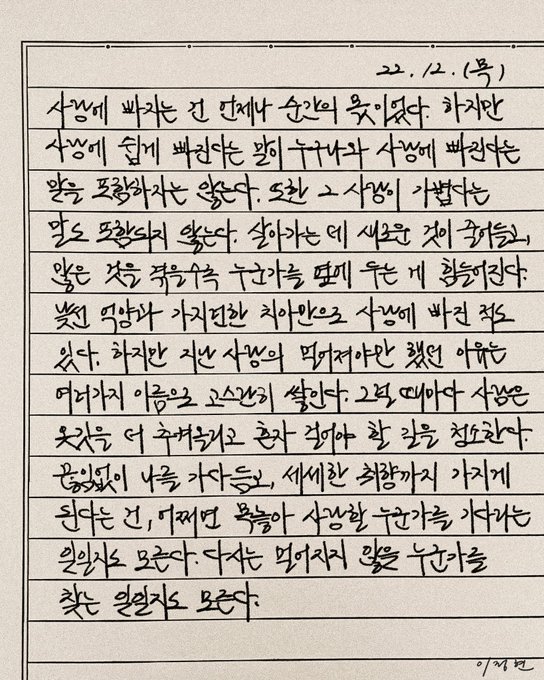 22. 12. (목)
사랑에 빠지는 건 언제나 순간의 몫이었다. 하지만
사랑에 쉽게 빠진다는 말이 누구나와 사랑에 빠진다는
말을 포함하지는 않는다. 또한 그 사랑이 가볍다는
말도 포함되지 않는다. 살아가는 데 새로운 것이 줄어들고,
많은 것을 겪을수록 누군가를 옆에 두는 게 힘들어진다.
낯선 억양과 가지런한 치아만으로 사랑에 빠진 적도
있다. 하지만 지난 사랑의 멀어져야만 했던 이유는
여러가지 이름으로 고스란히 쌓인다. 그럴 때마다 사람은
옷깃을 더 추켜올리고 혼자 걸어야 할 길을 청소한다.
끊임없이 나를 가다듬고, 세세한 취향까지 가지게
된다는 건, 어쩌면 목놓아 사랑할 누군가를 기다리는
일일지도 모른다. 다시는 멀어지지 않을 누군가를
찾는 일일지도 모른다.
이정현